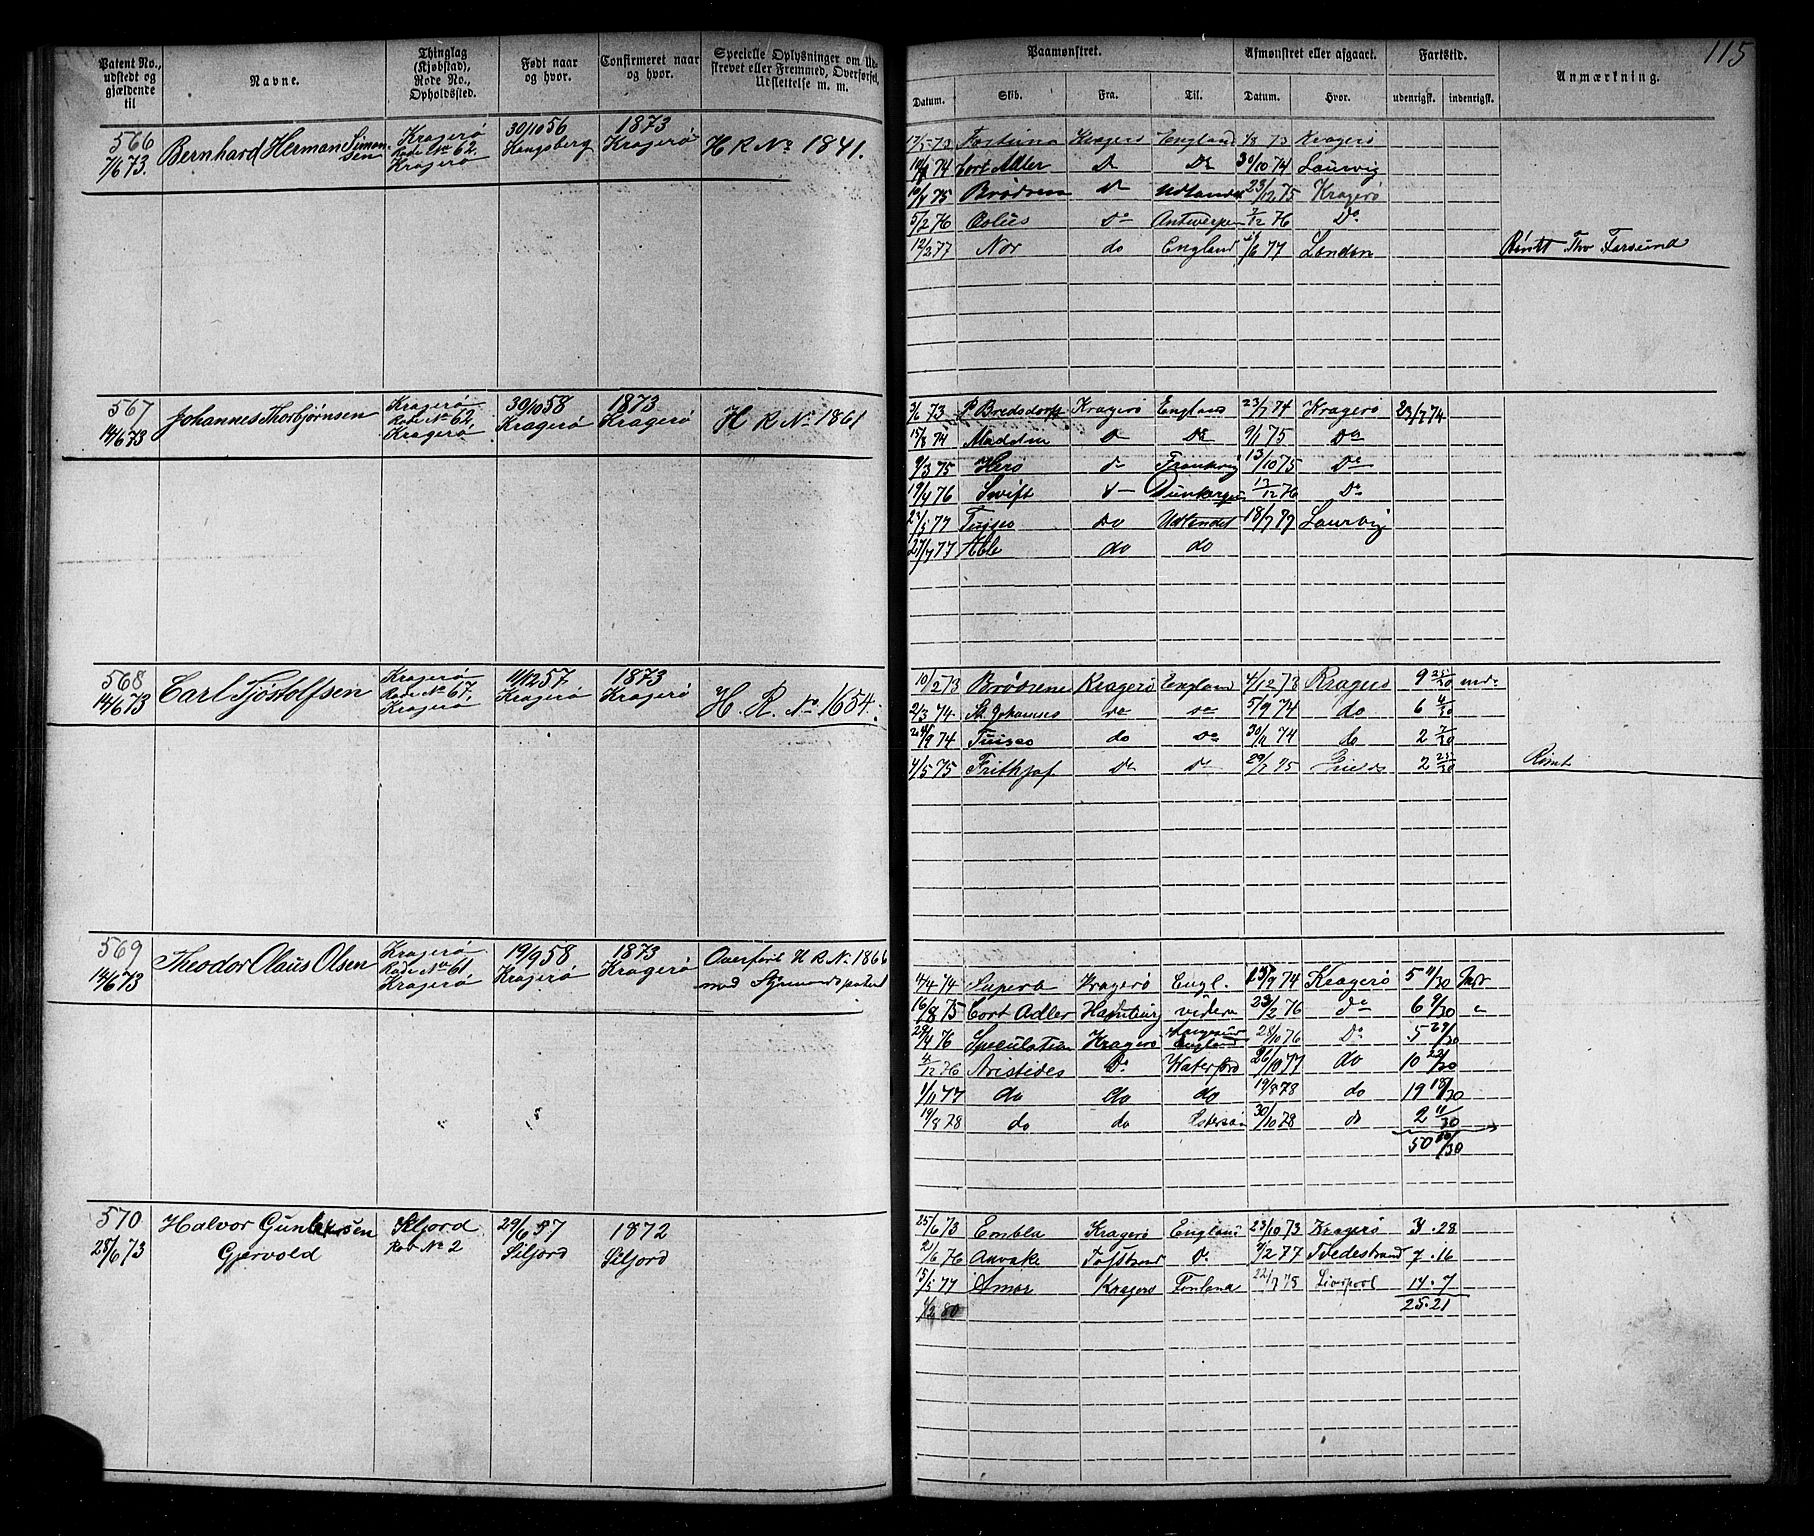 115
Patent No., udstedt og gjældende til
Navne.
Thinglag (Kjøbstad), Rode No., Opholdssted.
Født naar og hvor.
Confirmeret naar og hvor.
Specielle Oplysninger om Udskrevet eller Fremmed, Overførsel, Udslettelse m. m.
Paamønstret.
Afmønstret eller afgaaet.
Fartstid.
Anmærkning.
Datum. Skib. Fra. Til. Datum. Hvor. udenrigsk. indenrigsk.
566 7/6 73. Bernhard Herman Simonsen Kragerø Rode No 62. Kragerø 30/10 56 Kongsberg 1873 Kragerø H R No 1841.
17/5 73 Fortuna Kragerø England 1/8 73 Kragerø
74 Cort Adler Do Do 30/10 74 Laurvig
75 Brødrene Do Udlandet 23/12 75 Kragerø
5/2 76 Æolus Do Antwerpen 7/12 76 Do
12/2 77 Nor do England 77 London Rømt Farsund
567 14/6 73 Johannes Thorbjørnsen Kragerø Rode No 62, Kragerø 30/10 58 Kragerø 1873 Kragerø H R No 1861
3/6 73 P. Bredsdorff Kragerø England 23/7 74 Kragerø 23/7 74
15/8 74 Do 9/1 75 Do
9/3 75 Herø do 13/10 75 Do
19/4 76 Swift do 13/12 76 Do
23/5 77 Tuisco Do Udlandet 18/7 77 Laurvig
27/7 77 Able do do
568 14/6 73 Carl Tjostolfsen Kragerø Rode No 67. Kragerø 11/12 57. Kragerø 1873 Kragerø H. R. No 1654.
10/2 73 Brødrene Kragerø England 4/12 73 Kragerø 9 25/30 md.
2/3 74 St. Johannes Do Do 5/9 74 do 6 4/30
74 Tuisco do Do 30/11 74 do 2 7/30
4/5 75 Frithjof Do Do 29/7 75 2 25/30 Rømt
569 14/6 73 Theodor Olaus Olsen Kragerø Rode No 61. Kragerø 19/9 58 Kragerø 1873 Kragerø Overført H R No 1866
med Styrmandspatent
14/4 74 Superb Kragerø Engl. 25/9 74 Kragerø 5 11/30 Md.
16/8 75 Cort Adler Hamburg videre 23/2 76 do 6 9/30 "
29/4 76 Speculation Kragerø England 28/10 76 Do 5 29/30
4/12 76 Aristides Do Waterford 26/10 77 do 10 22/30
1/11 77 do do do 19/8 78 do 19 18/30
19/8 78 do do Østersøen 30/10 78 do 2 11/30
50 10/30
570 28/6 73 Halvor Gundersen Gjervold Siljord Rod No 2 29/6 57 Siljord 1872 Siljord
25/6 73 Embla Kragerø England 23/10 73 Kragerø 3.28
2/6 76 Anvake Tofstrand Do 9/2 77 Tvedestrand 7.16
15/5 77 Amor Kragerø Fenland 22/7 78 Liverpool 14.7
80 25.21